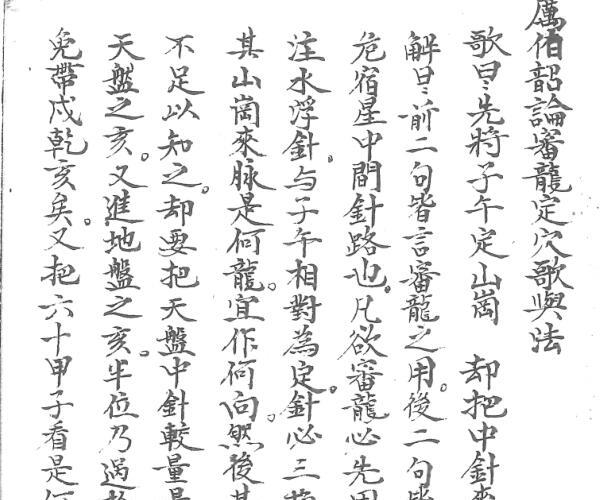 厲伯韶論審龍定穴歌與法
歌曰先將子午定山崗　却把中針來
解曰前二句皆言審龍之用。後二句皆
危宿星中間針路也。凡欲審龍必先用
注水浮針。与子午相對為定。針必三
其山崗來脉是何龍。宜作何向。然後其
不足以知之。却要把天盤中針較量是
天盤之亥。又進地盤之亥。半位乃過
免帶戌乾亥矣。又把六十甲子看是何